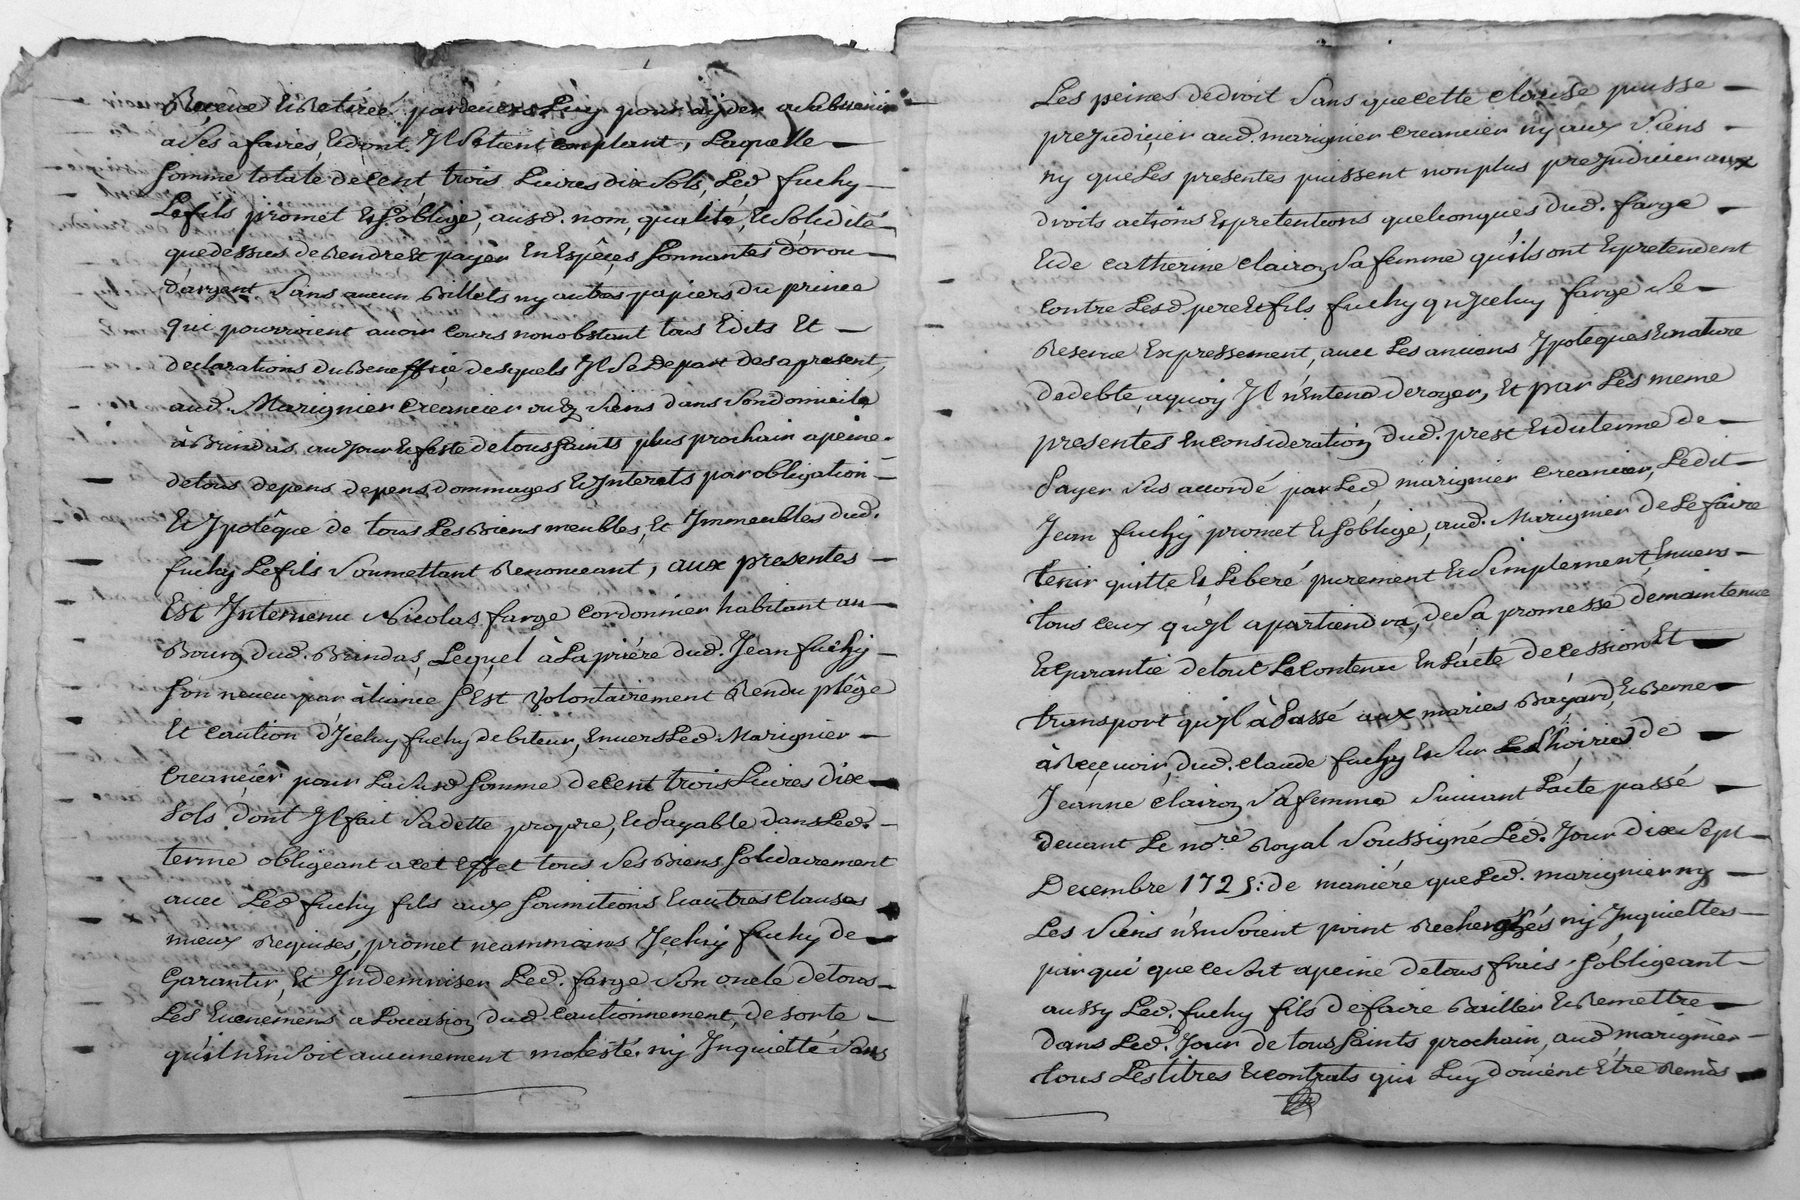 Reçeüe Et Retirée pardeuers Luy pour ayder et subuenir
a Ses afaires, Et dont Il Se tient Comptant, Laquelle
Somme totale de Cent trois Liures dix Sols, Led. fuchy
Le fils promet Et S'oblige, ausd. nom, qualité, Et Solidité
que dessus de Rendre Et payer En Espêçes Sonnantes d'or ou
d'argent Sans aucun Billets ny autres papiers du prince
qui pourroient auoir Cours nonobstant tous Edits Et
declarations du Beneffice desquels Il Se Depart des a present,
aud. Marignier Creancier ou Ez Siens dans Son domicile
à Brindas au Jour Et feste de tous Saints plus prochain a peine
de tous depens depens dommages Et Interets par obligation
Et Ipotêque de tous Les Biens meubles, Et Immeubles dud.
fuchy Le fils Soumettant Renonceant, aux presentes
Est Interuenu Nicolas farge Cordonnier habitant au
Bourg dud. Brindas, Lequel à La priére dud. Jean fuchy
Son neueu par aliance S'Est Volontairement Rendu plêge
Et Caution d'Iceluy fuchy debiteur, Enuers Led. Marignier
Creançier pour La Susd. Somme de Cent trois Liures dix
Sols dont Il fait Sa dette propre, Et Payable dans Led.
terme obligeant a cet Effet tous Ses Biens Solidairement
auec Led. fuchy fils aux Soumitions Et autres Clauses
mieux Requises, promet neammoins Iceluy fuchy de
Garantir, Et Indemniser Led. farge Son oncle de tous
Les Euenemens a Loccasion dud. Cautionnement, de sorte
qu'il n'En Soit aucunement molesté ny Inquietté Sous
Les peines de droit Sans que cette clause puisse
prejudiçier aud. marignier Creancier ny aux Siens
ny que Les presentes puissent non plus prejudicier aux
droits actions Et pretentions quelconques dud. farge
Et de Catherine Clairon Sa femme qu'ils ont Et pretendent
Contre Lesd. pere Et fils fuchy qu'Iceluy farge Se
Reserue Expressement, auec Les anciens Ipoteques Et nature
de debte, a quoy Il n'Entend deroger, Et par Les meme
presentes En consideration dud. prest Et du terme de
Payer Sus accordé par Led. marignier Creancier, Ledit
Jean fuchy promet Et S'oblige, aud. Marignier de Le faire
tenir quitte Et Liberé purement Et Simplement Enuers
tous Ceux qu'Il apartiendra, de Sa promesse de maintenue
Et Garantie de tout Le Contenu En L'acte de Cession Et
transport qu'Il à Passé aux maries Bayard, Et Berne
à Reçeuoir, dud. Claude fuchy Et Sur Les hoiries de
Jeanne Clairon Sa femme Suiuant L'acte passé
deuant Le no.re Royal Soussigné Led. Jour dix Sept
Decembre 1725: de maniére que Led. marignier ny
Les Siens n'En Soient point Recherchés ny Inquiettes
par qui que ce Soit a peine de tous frais, S'obligeant
aussy Led. fuchy fils de faire Bailler Et Remettre
dans Led. Jour de tous Saints prochain, aud marignier
tous Les titres Et Contrats qui Luy doiuent Etre Remis